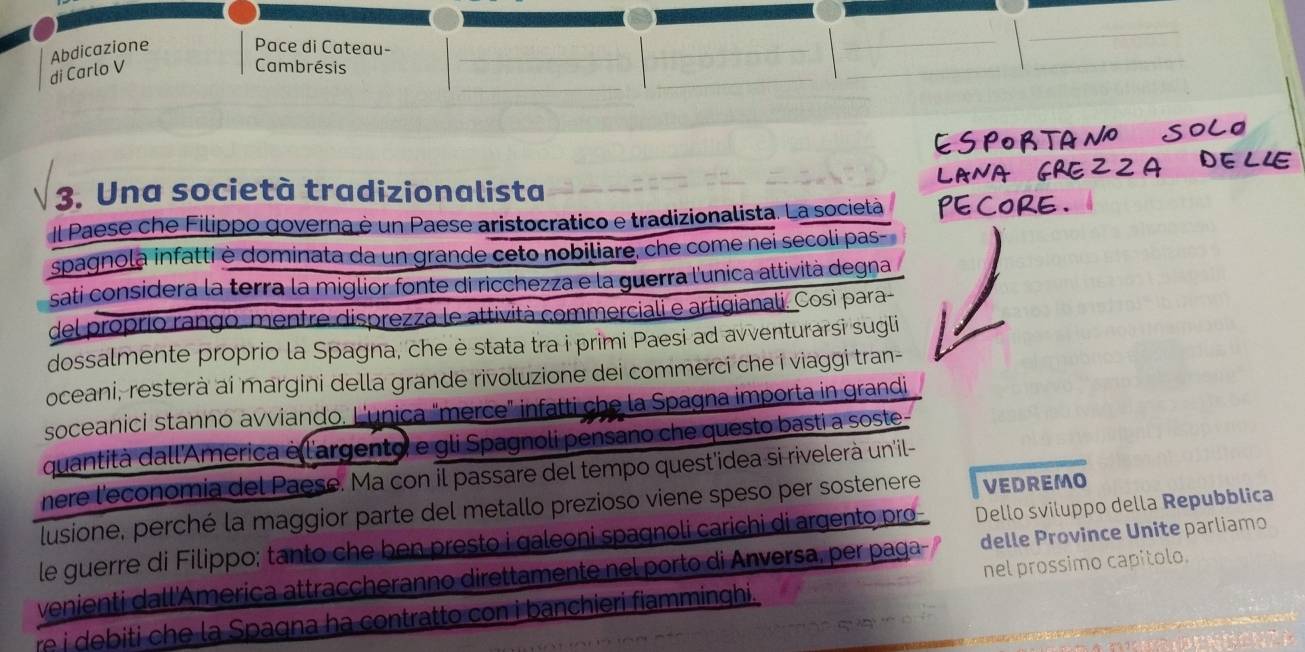 Abdicazione
di Carlo V
Pace di Cateau-
Cambrésis
ESPORTANO SOLO
LANA GREZZA DELLE
PECORE.
3. Una società tradizionalista
Il Paese che Filippo governa è un Paese aristocratico e tradizionalista. La società
spagnola infatti è dominata da un grande ceto nobiliare, che come nei secoli pas-
sati considera la terra la miglior fonte di ricchezza e la guerra l'unica attività degna
del proprio rango, mentre disprezza le attività commerciali e artigianali. Così para-
dossalmente proprio la Spagna, che è stata tra i primi Paesi ad avventurarsi sugli
oceani, resterà ai margini della grande rivoluzione dei commerci che i viaggi tran-
soceanici stanno avviando. L'unica "merce" infatti che la Spagna importa in grandi
quantità dall'America è l'argento, e gli Spagnoli pensano che questo basti a soste-
nere l'economia del Paese. Ma con il passare del tempo quest'idea si rivelerà un'il-
lusione, perché la maggior parte del metallo prezioso viene speso per sostenere
le guerre di Filippo; tanto che ben presto i galeoni spagnoli carichi di argento pro-
venienti dall'America attraccheranno direttamente nel porto di Anversa, per paga-
re i debiti che la Spagna ha contratto con i banchieri fiamminghi.
VEDREMO
Dello sviluppo della Repubblica
delle Province Unite parliamo
nel prossimo capitolo.